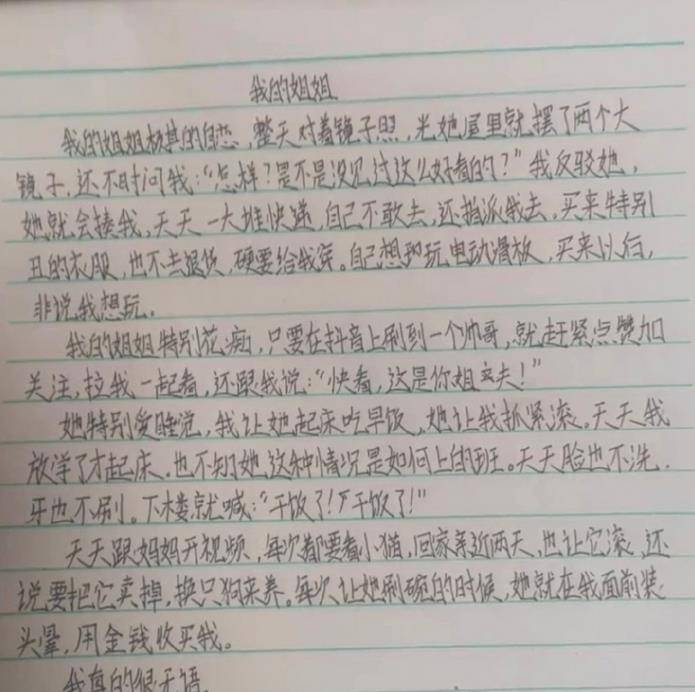 我的姐姐
我的姐姐极其的自恋，整天对着镜子照，光她屋里就摆了两个大
镜子，还不时问我：“怎样？是不是没见过这么好看的？”我反驳她，
她就会揍我，天天一大堆快递，自己不敢去，还指派我去，买来特别
丑的衣服，也不去退货，硬要给我穿。自己想玩电动滑板，买来以后，
非说我想玩。
我的姐姐特别花痴，只要在抖音上刷到一个帅哥，就赶紧点赞加
关注，拉我一起看，还跟我说：“快看，这是你姐夫！”
她特别爱睡觉，我让她起床吃早饭，她让我抓紧滚。天天我
放学了才起床，也不知她这种情况是如何上的班。天天脸也不洗，
牙也不刷。下楼就喊：“干饭了！干饭了！”
天天跟妈妈开视频，每次都要看小猫，回家亲近两天，也让它滚，还
说要把它卖掉，换只狗来养。每次让她刷碗的时候，她就在我面前装
头晕，用金钱收买我。
我真的很无语